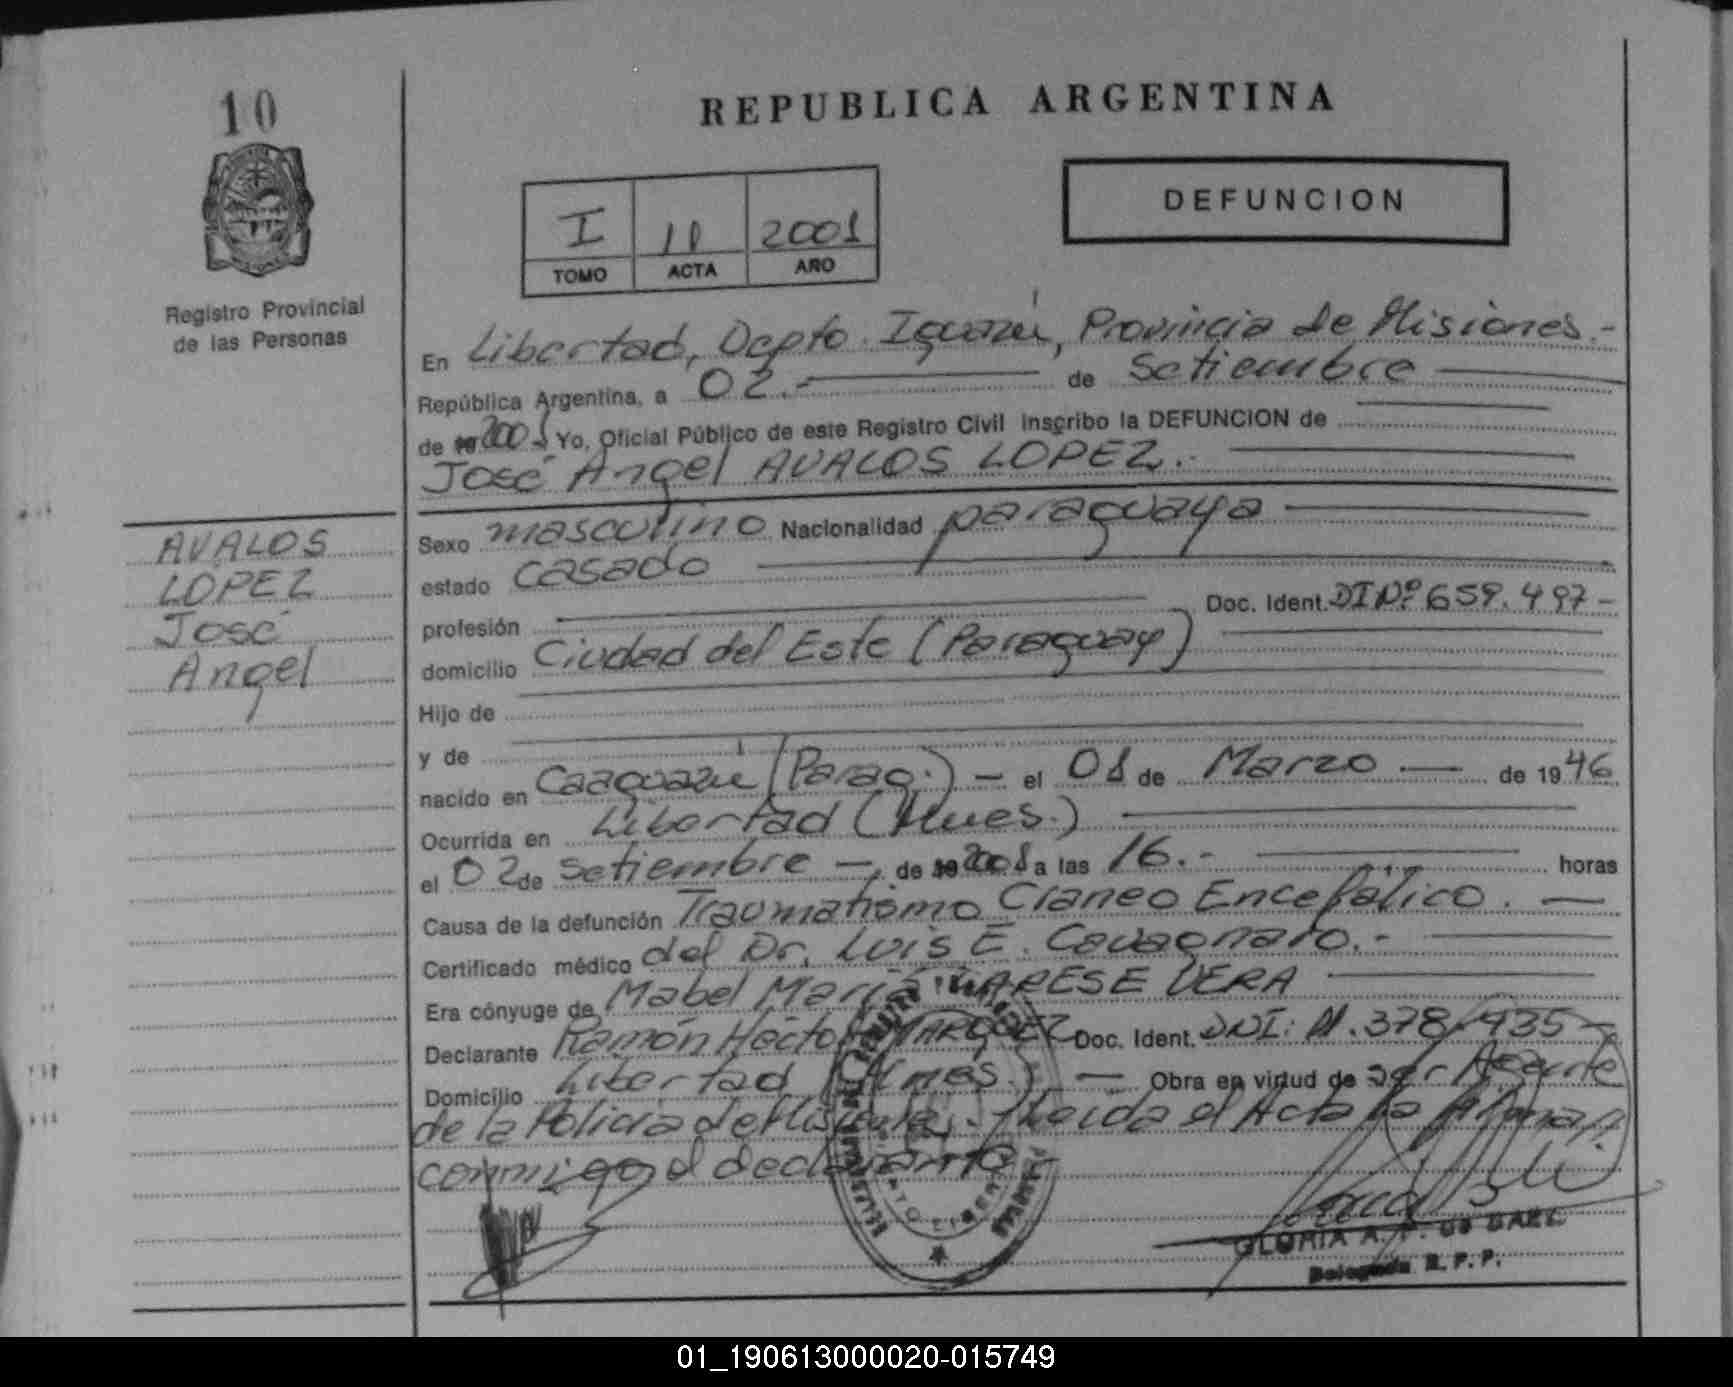 10
REPUBLICA ARGENTINA
DEFUNCION
I 10 2001
TOMO ACTA AÑO
Registro Provincial
de las Personas
AVALOS
LOPEZ
José
Angel
En Libertad, Depto. Iguazú, Provincia de Misiones.-
República Argentina, a 02.- de Setiembre
de 19 2001 Yo, Oficial Público de este Registro Civil inscribo la DEFUNCION de
José Angel AVALOS LOPEZ.-
Sexo masculino Nacionalidad paraguaya
estado casado
profesión Doc. Ident. DI Nº 659.497-
domicilio Ciudad del Este (Paraguay)
Hijo de
y de
nacido en Caaguazú (Parag.) - el 01 de Marzo - de 1946
Ocurrida en Libertad (Mnes.)
el 02 de Setiembre - de 19 2001 a las 16.- horas
Causa de la defunción Traumatismo Craneo Encefálico. -
Certificado médico del Dr. Luis E. Cavagnaro.-
Era cónyuge de Mabel María VERA
Declarante Ramón Héctor MARQUEZ Doc. Ident. DNI: 11.378.935-
Domicilio Libertad (Mnes.) - Obra en virtud de ser Agente
de la Policia de Misiones.- Leida el Acta la firman
conmigo el declarante
GLORIA A.
R. P. P.
01_190613000020-015749